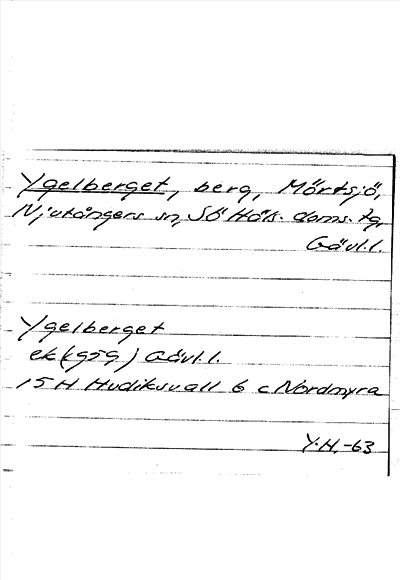 Ygelberget, berg, Mörtsjö,
Njutångers sn, SÖ Häls. doms. tg,
Gävl.l.
Ygelberget
ek (959) Gävl.l.
15H Hudiksvall 6 c Nordmyra
Y.H.-63